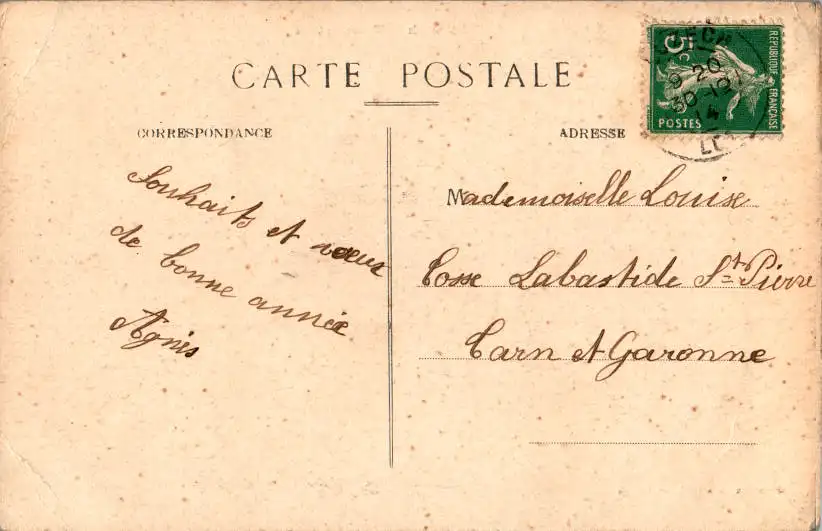 CARTE POSTALE
CORRESPONDANCE
ADRESSE
Souhaits et vœux
de bonne année
Agnès
Mademoiselle Louise
Cosse Labastide St Pierre
Tarn et Garonne
5c
REPUBLIQUE FRANÇAISE
POSTES
20
30-12